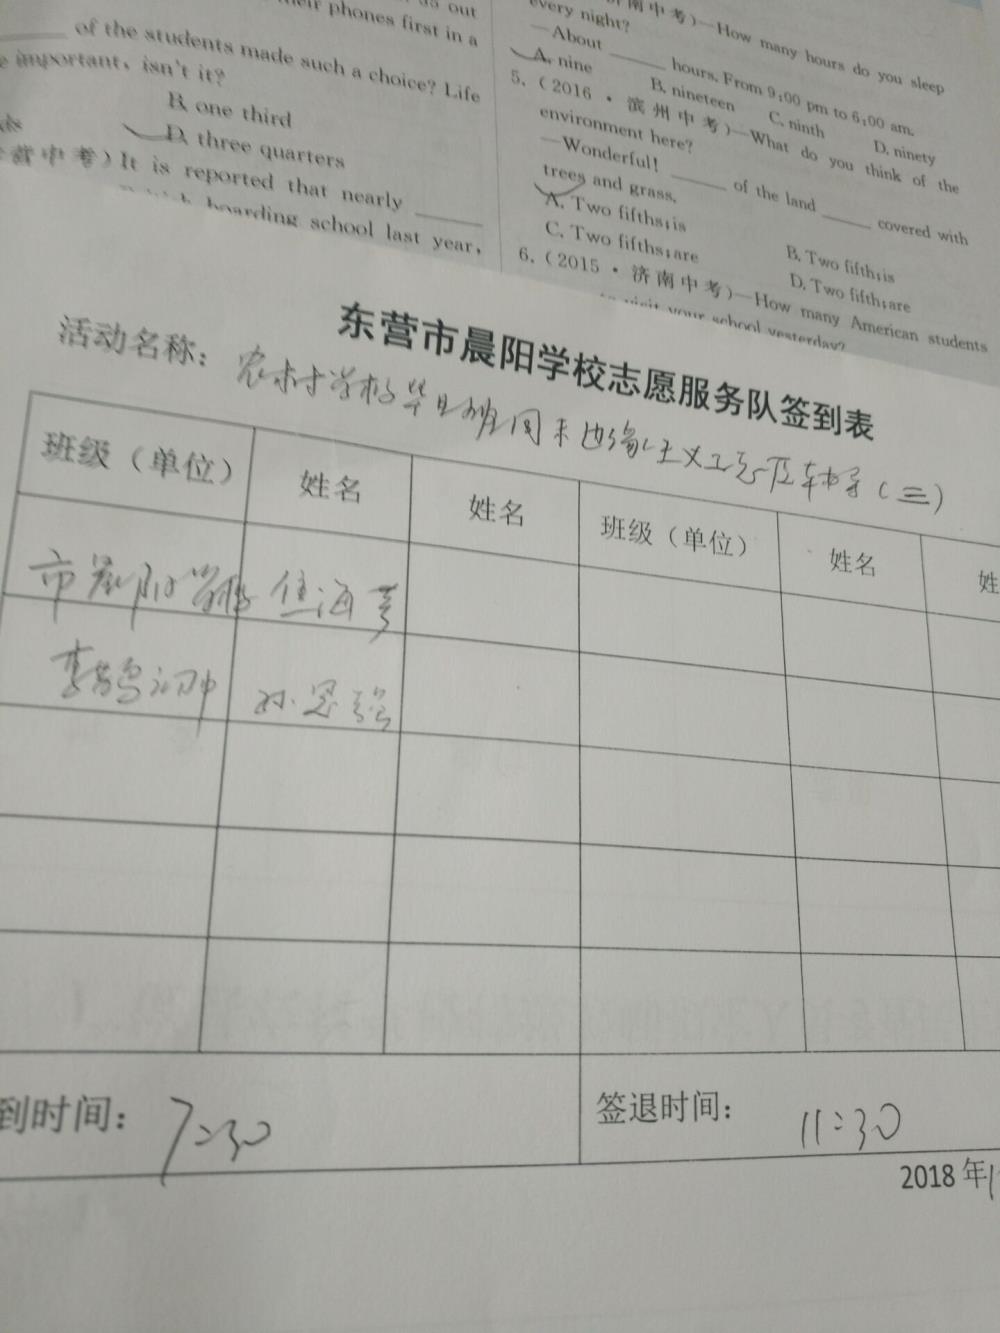 of the students made such a choice? Life
important, isn't it?
B. one third
D. three quarters
营中考)It is reported that nearly
boarding school last year,
their phones first in a
out
南中考)—How many hours do you sleep
every night?
—About ______ hours. From 9:00 pm to 6:00 am.
A. nine B. nineteen C. ninth D. ninety
5.(2016·滨州中考)—What do you think of the
environment here?
—Wonderful! ______ of the land ______ covered with
trees and grass.
A. Two fifths;is B. Two fifth;is
C. Two fifths;are D. Two fifth;are
6.(2015·济南中考)—How many American students
visit your school yesterday?
东营市晨阳学校志愿服务队签到表
活动名称: 农村学校毕业班周末边缘生义工志愿辅导(三)
班级(单位) 姓名 姓名 班级(单位) 姓名 姓
市晨阳学校 海
初中 孙恩强
到时间: 7:30 签退时间: 11:30
2018年